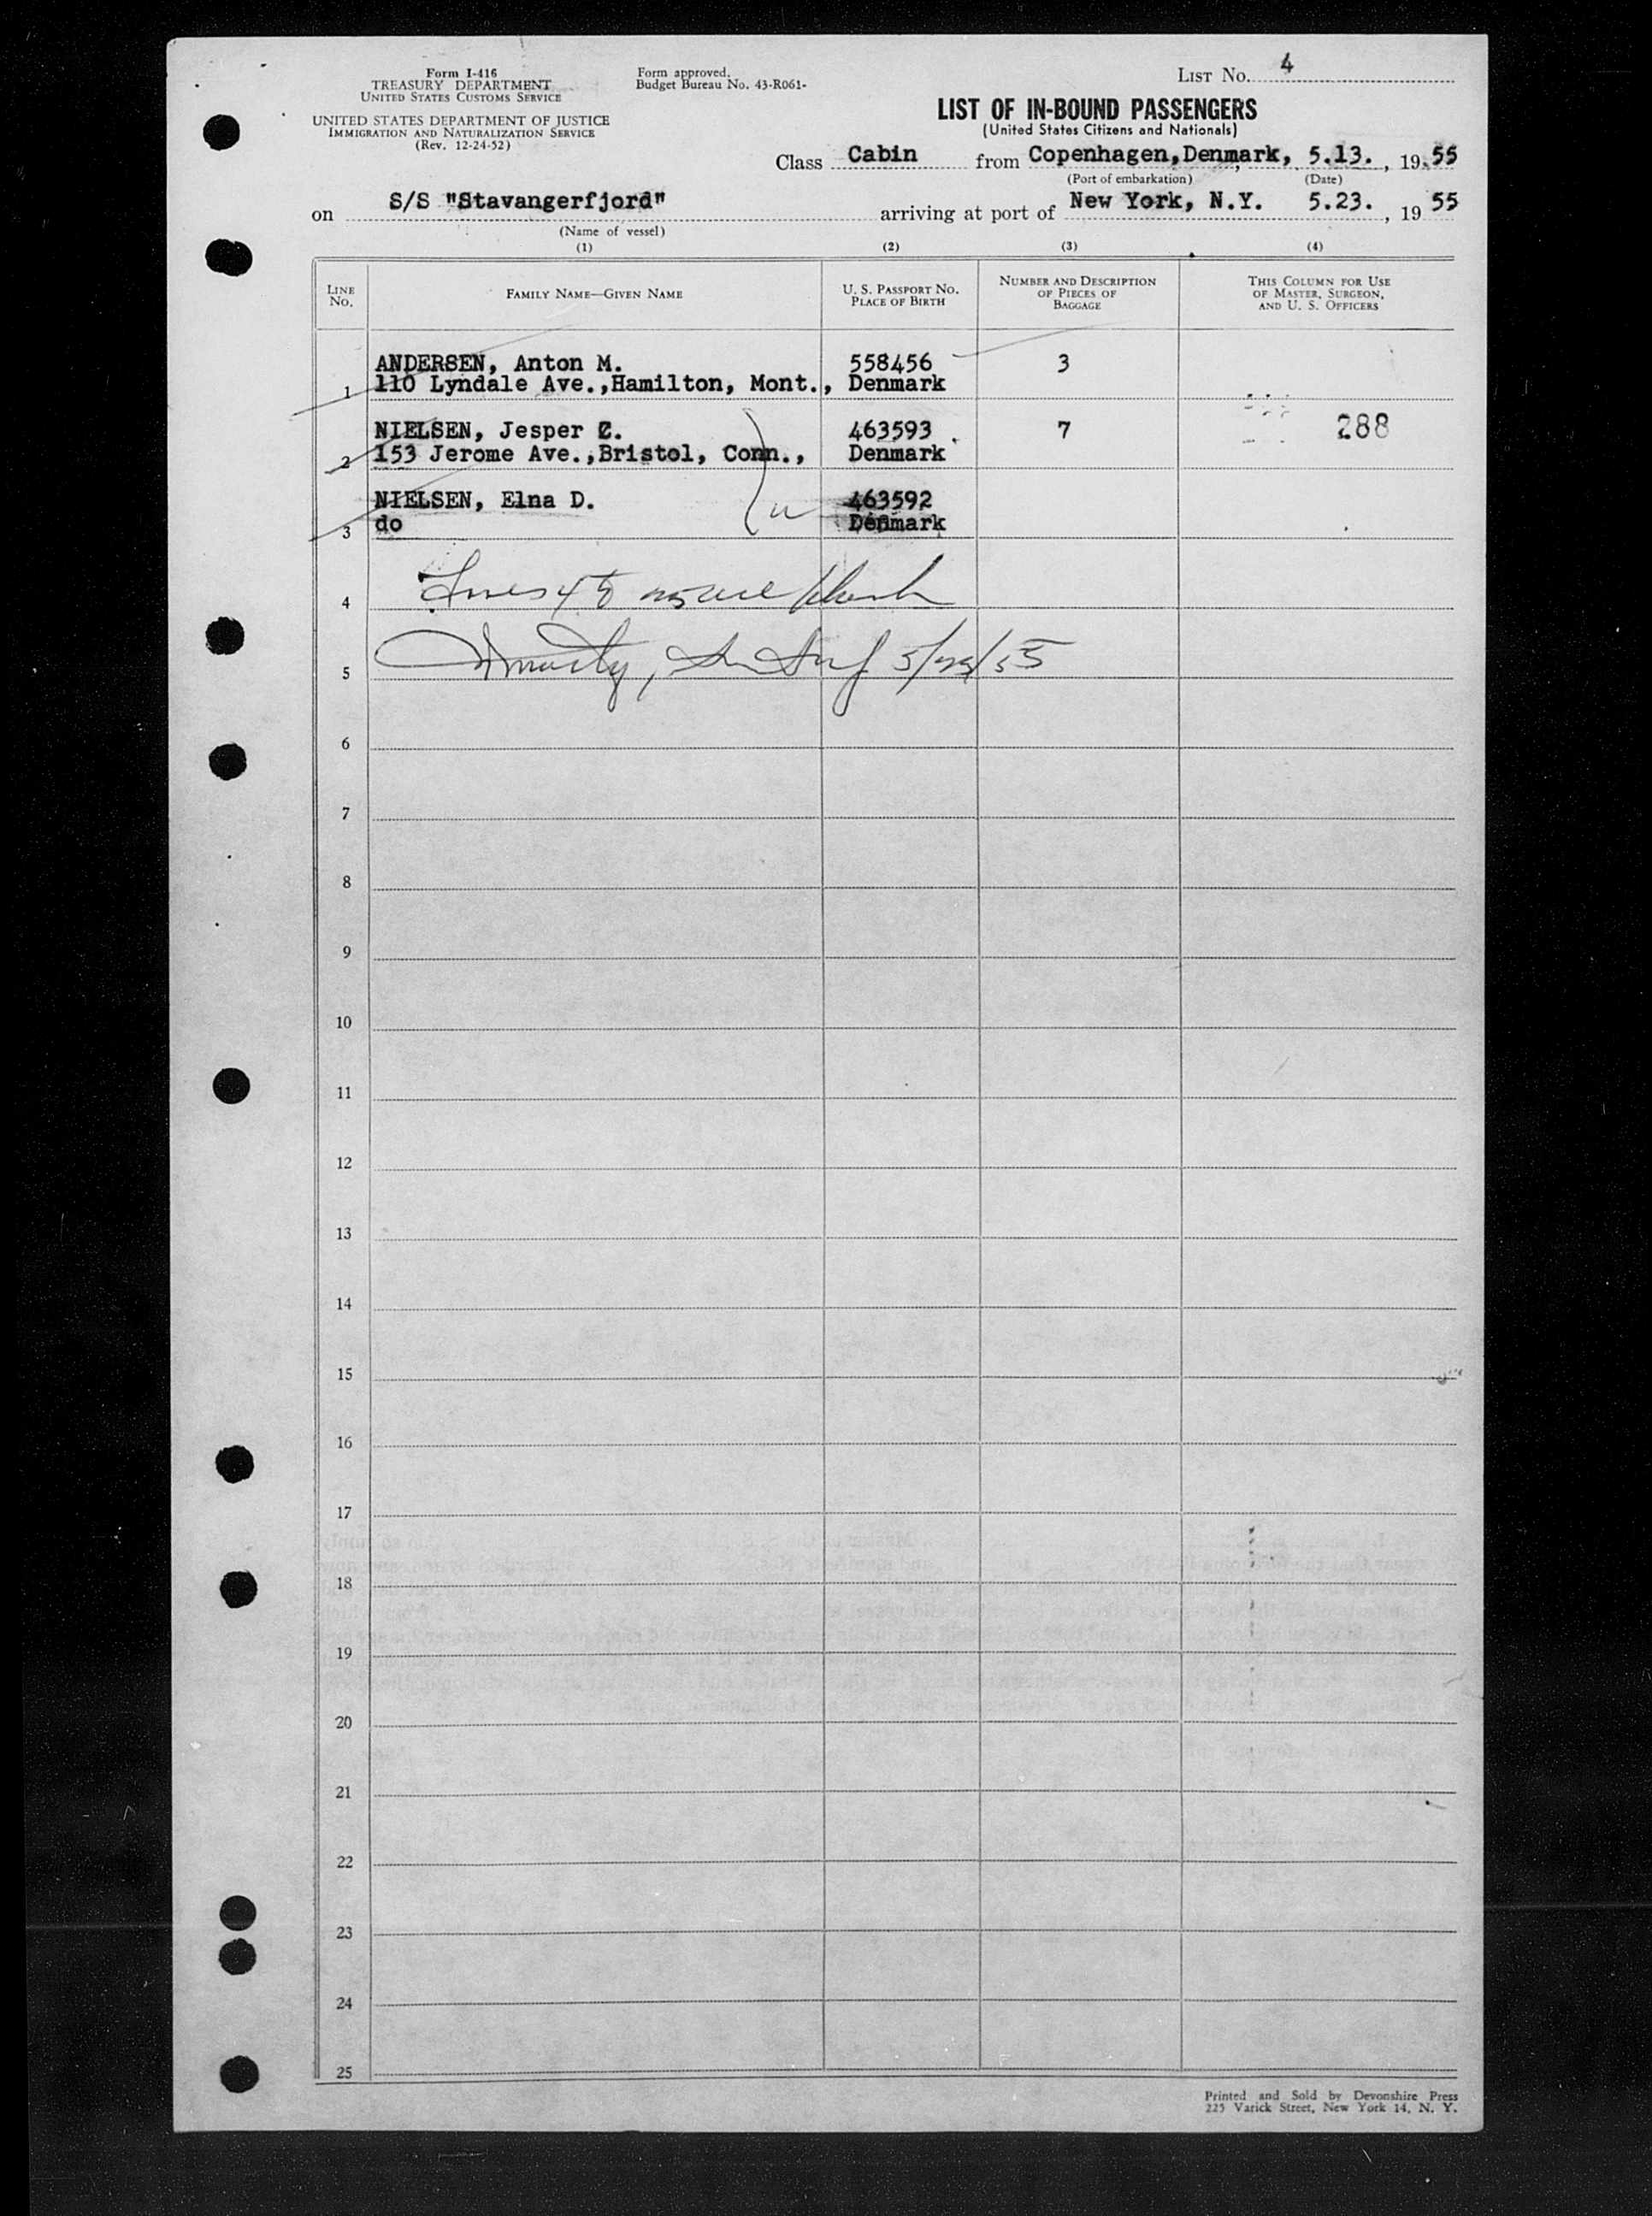 Form I-416
TREASURY DEPARTMENT
UNITED STATES CUSTOMS SERVICE
UNITED STATES DEPARTMENT OF JUSTICE
IMMIGRATION AND NATURALIZATION SERVICE
(Rev. 12-24-52)
Form approved.
Budget Bureau No. 43-R061-
LIST No. 4
LIST OF IN-BOUND PASSENGERS
(United States Citizens and Nationals)
Class Cabin from Copenhagen, Denmark, 5.13., 19 55
(Port of embarkation) (Date)
on S/S "Stavangerfjord" arriving at port of New York, N.Y. 5.23., 19 55
(Name of vessel)
(1) (2) (3) (4)
LINE No. FAMILY NAME—GIVEN NAME U. S. PASSPORT NO. PLACE OF BIRTH NUMBER AND DESCRIPTION OF PIECES OF BAGGAGE THIS COLUMN FOR USE OF MASTER, SURGEON, AND U. S. OFFICERS
ANDERSEN, Anton M. 558456 3
1 110 Lyndale Ave.,Hamilton, Mont., Denmark
NIELSEN, Jesper C. 463593 7 288
2 153 Jerome Ave.,Bristol, Conn., Denmark
NIELSEN, Elna D. 463592
3 do Denmark
4 Lines
5 5/23/55
6
7
8
9
10
11
12
13
14
15
16
17
18
19
20
21
22
23
24
25
Printed and Sold by Devonshire Press
225 Varick Street, New York 14, N. Y.